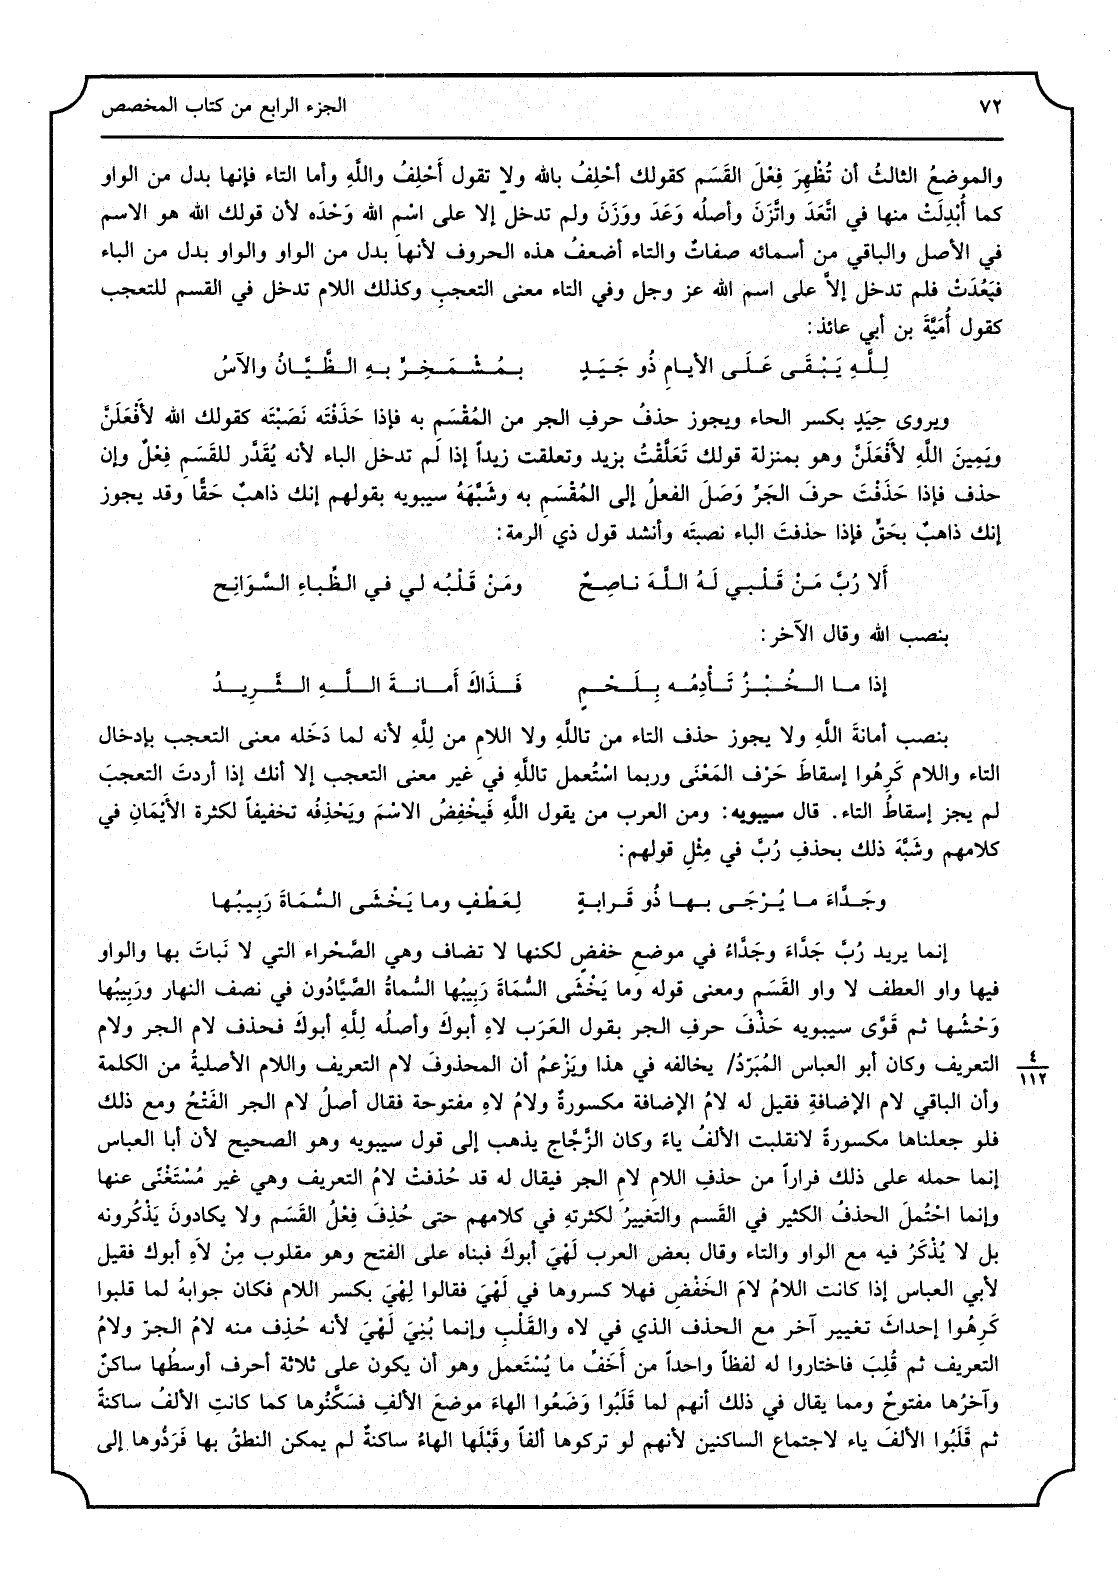 ٧٢ الجزء الرابع من كتاب المخصص
والموضعُ الثالثُ أن تُظْهِرَ فِعْلَ القَسَم كقولك أحْلِفُ بالله ولا تقول أَحْلِفُ واللَّهِ وأما التاء فإنها بدل من الواو
كما أُبْدِلَتْ منها في اتَّعَدَ واتَّزَنَ وأصلُه وَعَدَ ووَزَنَ ولم تدخل إلا على اسْمِ الله وَحْدَه لأن قولك الله هو الاسم
في الأصل والباقي من أسمائه صفاتٌ والتاء أضعفُ هذه الحروف لأنها بدل من الواو والواو بدل من الباء
فبَعُدَتْ فلم تدخل إلاَّ على اسم الله عز وجل وفي التاء معنى التعجبِ وكذلك اللام تدخل في القسم للتعجب
كقول أُمَيَّةَ بن أبي عائذ:
لِلَّهِ يَبْقَى عَلَى الأيامِ ذُو جَيَدٍ بمُشْمَخِرٍّ بهِ الظَّيَّانُ والآسُ
ويروى حِيَدٍ بكسر الحاء ويجوز حذفُ حرفِ الجر من المُقْسَمِ به فإذا حَذَفْتَه نَصَبْتَه كقولك الله لأَفْعَلَنَّ
ويَمِينَ اللَّهِ لأَفْعَلَنَّ وهو بمنزلة قولك تَعَلَّقْتُ بزيد وتعلقت زيداً إذا لم تدخل الباء لأنه يُقَدَّر للقَسَمِ فِعْلٌ وإن
حذف فإذا حَذَفْتَ حرفَ الجَرِّ وَصَلَ الفعلُ إلى المُقْسَمِ به وشَبَّهَهُ سيبويه بقولهم إنك ذاهبٌ حَقًّا وقد يجوز
إنك ذاهبٌ بحَقٍّ فإذا حذفتَ الباء نصبتَه وأنشد قول ذي الرمة:
أَلا رُبَّ مَنْ قَلْبي لَهُ اللَّهَ ناصِحٌ ومَنْ قَلْبُه لي في الظِّباءِ السَّوَانِحِ
بنصب الله وقال الآخر:
إذا ما الخُبْزُ تَأْدِمُه بِلَحْمٍ فَذَاكَ أَمانةَ اللَّهِ الثَّرِيدُ
بنصب أمانةَ اللَّهِ ولا يجوز حذف التاء من تاللَّهِ ولا اللامِ من لِلَّهِ لأنه لما دَخَله معنى التعجب بإدخال
التاء واللام كَرِهُوا إسقاطَ حَرْف المَعْنَى وربما اسْتُعمل تاللَّهِ في غير معنى التعجب إلا أنك إذا أردتَ التعجبَ
لم يجز إسقاطُ التاء. قال سيبويه: ومن العرب من يقول اللَّهِ فَيَخْفِضُ الاسْمَ ويَحْذِفُه تخفيفاً لكثرة الأَيْمَانِ في
كلامهم وشَبَّهَ ذلك بحذفِ رُبَّ في مِثْلِ قولهم:
وجَدَّاءَ ما يُرْجَى بها ذُو قَرابةٍ لِعَطْفٍ وما يَخْشَى السُّمَاةَ رَبِيبُها
إنما يريد رُبَّ جَدَّاءَ وجَدَّاءُ في موضع خفضٍ لكنها لا تضاف وهي الصَّحْراء التي لا نَباتَ بها والواو
فيها واو العطف لا واو القَسَمِ ومعنى قوله وما يَخْشَى السُّمَاةَ رَبِيبُها السُّماةُ الصَّيَّادُون في نصف النهار ورَبِيبُها
وَحْشُها ثم قَوَّى سيبويه حَذْفَ حرفِ الجر بقول العَرَب لاهِ أبوكَ وأصلُه لِلَّهِ أبوكَ فحذف لام الجر ولام
التعريف وكان أبو العباس المُبَرِّدُ/ يخالفه في هذا ويَزْعمُ أن المحذوفَ لام التعريف واللام الأصليةُ من الكلمة
٤
١١٢
وأن الباقي لام الإضافةِ فقيل له لامُ الإضافة مكسورةٌ ولامُ لاهِ مفتوحة فقال أصلُ لام الجر الفَتْحُ ومع ذلك
فلو جعلناها مكسورةً لانقلبت الألفُ ياءً وكان الزَّجَّاج يذهب إلى قول سيبويه وهو الصحيح لأن أبا العباس
إنما حمله على ذلك فراراً من حذفِ اللامِ لامِ الجر فيقال له قد حُذفتْ لامُ التعريف وهي غير مُسْتَغْنًى عنها
وإنما احْتُملَ الحذفُ الكثير في القَسم والتغييرُ لكثرتهِ في كلامهم حتى حُذِفَ فِعْلُ القَسَم ولا يكادونَ يَذْكُرونه
بل لا يُذْكَرُ فيه مع الواو والتاء وقال بعض العرب لَهْيَ أبوكَ فبناه على الفتح وهو مقلوب مِنْ لاَهِ أبوك فقيل
لأبي العباس إذا كانت اللامُ لامَ الخَفْضِ فهلا كسروها في لَهْيَ فقالوا لِهْيَ بكسر اللام فكان جوابهُ لما قلبوا
كَرِهُوا إحداثَ تغيير آخر مع الحذف الذي في لاه والقَلْبِ وإنما بُنِيَ لَهْيَ لأنه حُذِف منه لامُ الجرّ ولامُ
التعريف ثم قُلِبَ فاختاروا له لفظاً واحداً من أَخَفِّ ما يُسْتَعمل وهو أن يكون على ثلاثة أحرف أوسطُها ساكنٌ
وآخرُها مفتوحٌ ومما يقال في ذلك أنهم لما قَلَبُوا وَضَعُوا الهاءَ موضعَ الألفِ فسَكَّنُوها كما كانتِ الألفُ ساكنةً
ثم قَلَبُوا الألفَ ياء لاجتماع الساكنين لأنهم لو تركوها ألفاً وقَبْلَها الهاءُ ساكنةٌ لم يمكن النطقُ بها فَرَدُّوها إلى